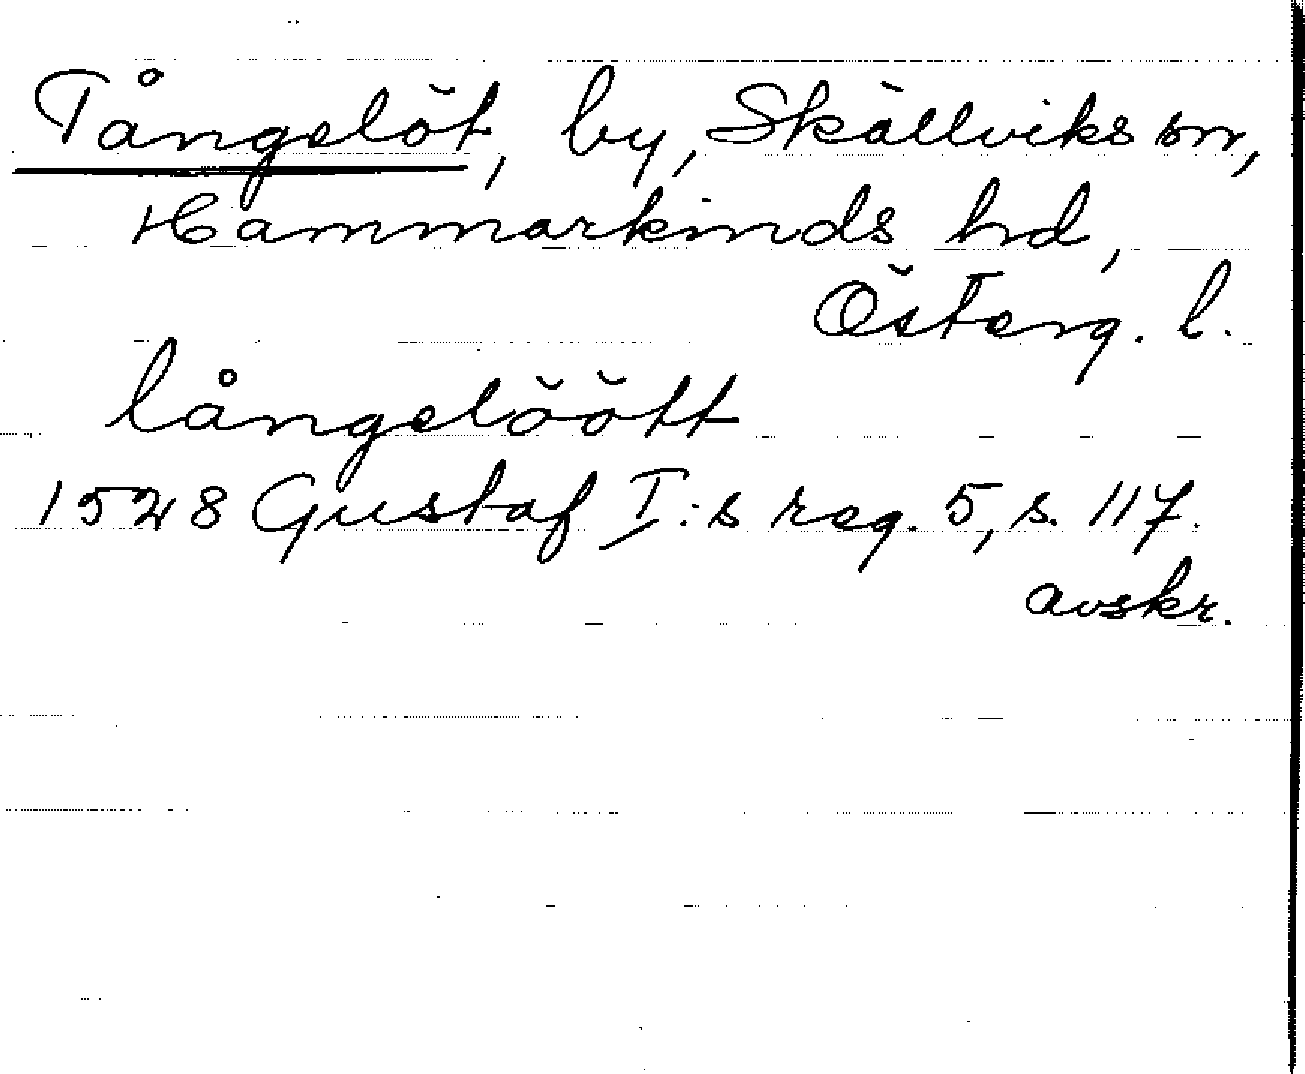 Tångelöt, by, Skällviks sn,
Hammarkinds hd,
Österg. l.
långelöött
1528 Gustaf I:s reg. 5, s. 117.
avskr.